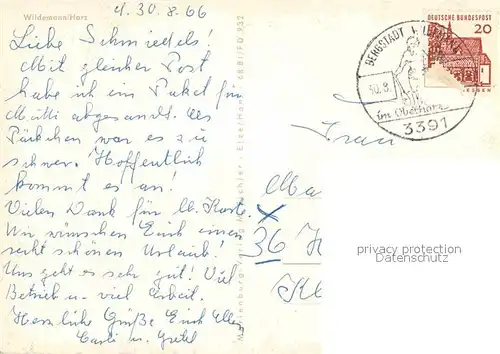 Wildemann/Harz
d. 30.8.66
Liebe Schmiedels!
Mit gleicher Post
habe ich ein Paket für
Mutti abgesandt. Als
Päckchen war es zu
schwer. Hoffentlich
kommt es an!
Vielen Dank für lb. Karte.
Wir wünschen Euch einen
recht schönen Urlaub!
Uns geht es sehr gut! Viel
Betrieb u. viel Arbeit.
Herzliche Grüße Euch Allen
u. Gretel
DEUTSCHE BUNDESPOST
20
BERGSTADT
im Oberharz
3391
Frau
36
privacy protection
Datenschutz